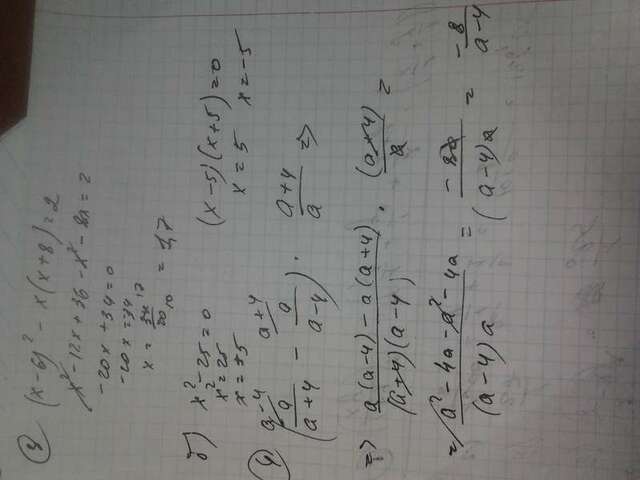 ③ (x-6)² - x(x+8)=2
x²-12x+36-x²-8x=2
-20x+34=0
-20x=34
x = 34/20 17/10 = 1,7
б) x²-25=0
x²=25
x=±5
(x-5)(x+5)=0
x=5 x=-5
④ (a/(a+4) - a/(a-4)) · (a+4)/a =>
=> (a(a-4)-a(a+4))/((a+4)(a-4)) · (a+4)/a =
= (a²-4a-a²-4a)/((a-4)a) = -8a/((a-4)a) = -8/(a-4)